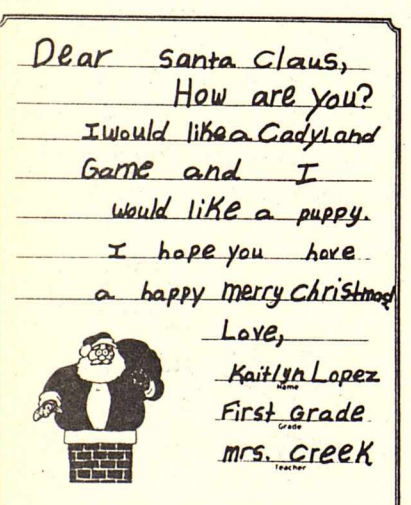 Dear Santa Claus,
How are you?
I would like a Cadyland
Game and I
would like a puppy.
I hope you have
a happy merry Christmas
Love,
Kaitlyn Lopez
Name
First Grade
Grade
mrs. Creek
Teacher